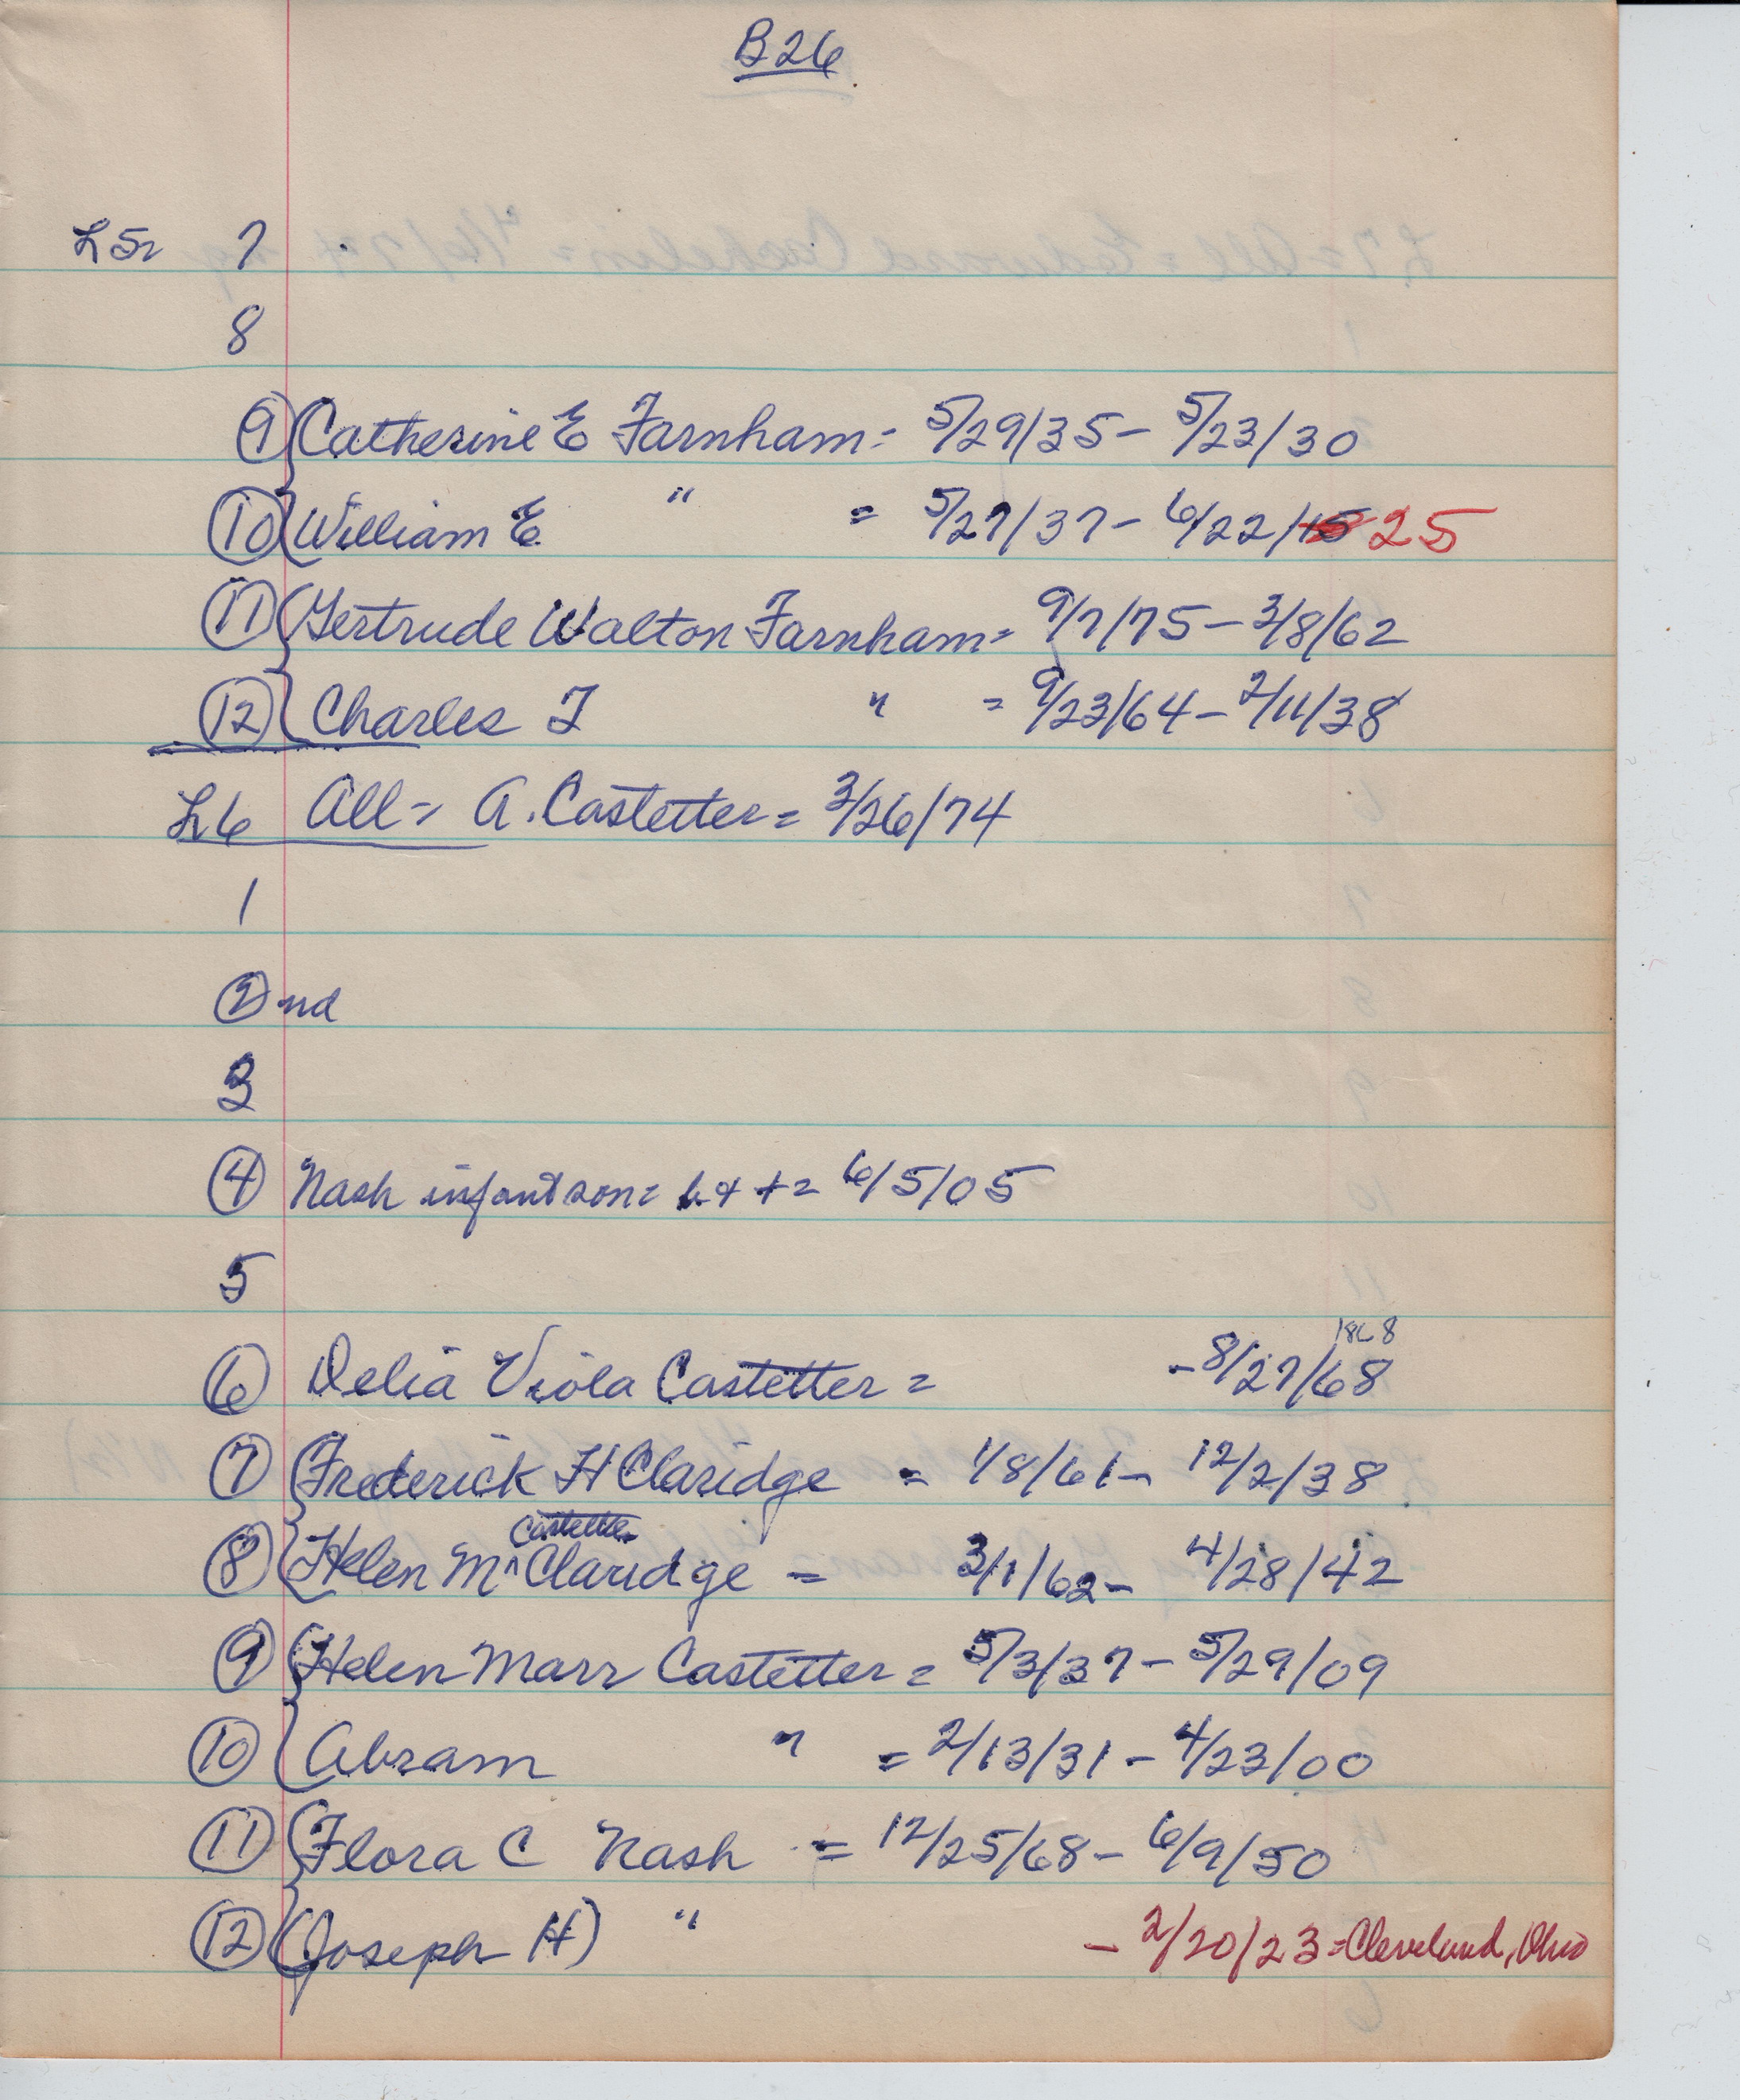 B26
L5 7
8
9 Catherine E Farnham = 5/29/35 - 5/23/30
10 William E " = 5/27/37 - 6/22/15 25
11 Gertrude Walton Farnham = 9/7/75 - 3/8/62
12 Charles F " = 9/23/64 - 2/11/38
L6 All = A. Castetter = 3/26/74
1
2 nd
3
4 Nash infant son = b + t = 6/5/05
5
1868
6 Delia Viola Castetter = - 8/27/68
7 Frederick H Claridge = 1/8/61 - 12/2/38
Castetter
8 Helen M ^ Claridge = 3/1/62 - 4/28/42
9 Helen Marr Castetter = 5/3/37 - 5/29/09
10 Abram " = 2/13/31 - 4/23/00
11 Flora C Nash = 12/25/68 - 6/9/50
12 (Joseph H) " - 2/20/23 = Cleveland, Ohio